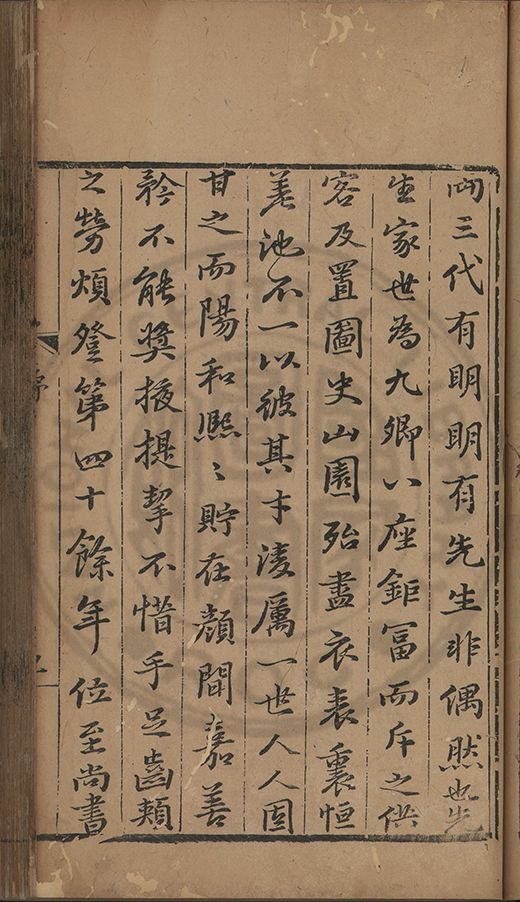 而三代有明明有先生非偶然也先
生家世為九卿八座鉅富而斥之供
客及置圖史山園殆盡衣表裏恒
差池不一以彼其才淩厲一世人人固
甘之而陽和煕〻貯在顔間嘉善
矜不能奬掖提挈不惜手足齒頰
之勞煩登第四十餘年位至尚書
序